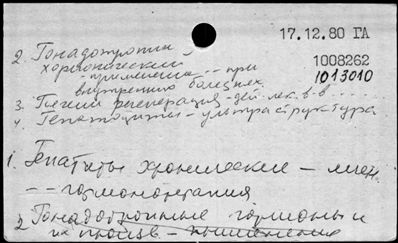 17.12.80 ГА
2. Гонадотропин
хорионический
1008262
- применение -- при
1013010
внутренних болезнях
3. Легкии регенерация - дей. лек. в-в ....
4. Гепатоциты - ультраструктура
1. Гепатиты хронические - лечен.
-- гормонотерапия
2 Гонадотропные гормоны и
их произв. - применение